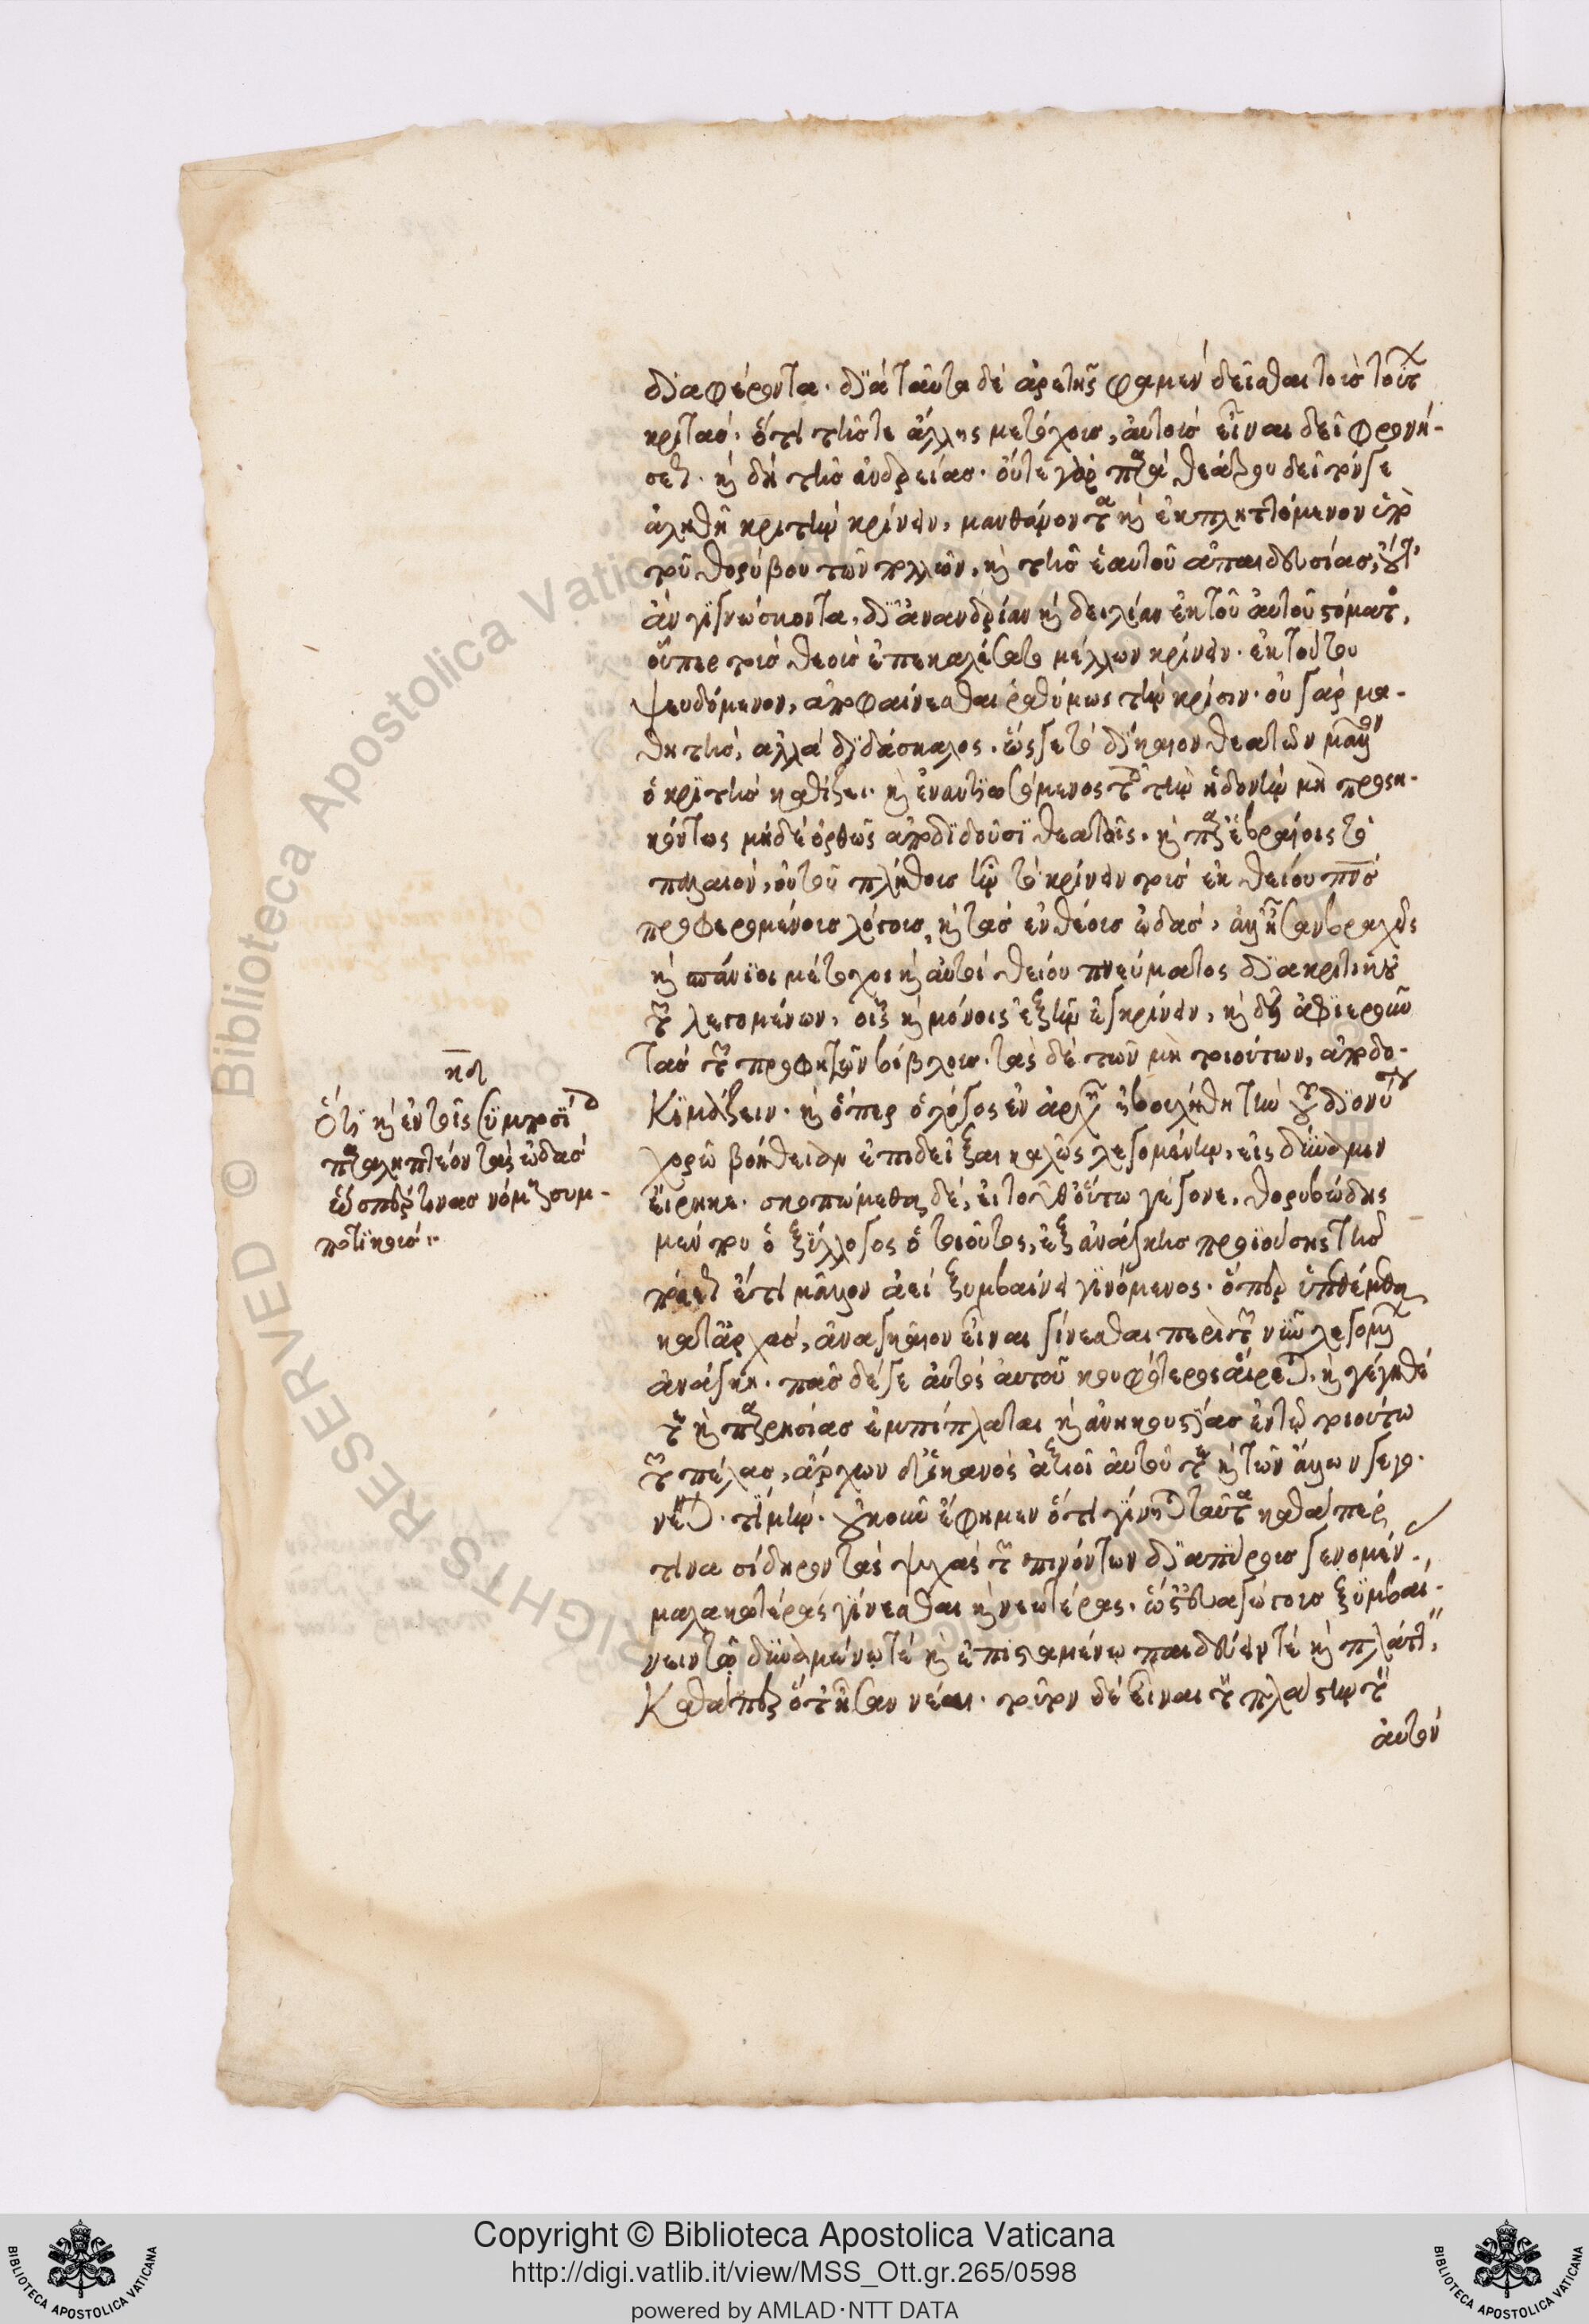 διαφέροντα. διὰ ταῦτα δὲ ἀρετῆς φαμὲν δεῖσθαι τοὺς τούτων
κριτάς. ὅτι τῆς τε ἄλλης μετόχους, αὐτοὺς εἶναι δεῖ φρονή-
σεως. καὶ δὴ τῆς ἀνδρείας. οὔτε γὰρ παρὰ θεάτρου δεῖ τόν γε
ἀληθῆ κριτὴν κρίνειν, μανθάνοντα καὶ ἐκπληττόμενον ὑπὸ
τοῦ θορύβου τῶν πολλῶν, καὶ τῆς ἑαυτοῦ ἀπαιδευσίας, οὔτ'
ἂν γιγνώσκοντα, δι' ἀνανδρίαν καὶ δειλίαν ἐκ τοῦ αὐτοῦ στόματος,
οὗπερ τοὺς θεοὺς ἐπεκαλέσατο μέλλων κρίνειν. ἐκ τούτου
ψευδόμενον, ἀποφαίνεσθαι ῥαθύμως τὴν κρίσιν. οὐ γὰρ μα-
θητὴς, ἀλλὰ διδάσκαλος. ὥς γε τὸ δίκαιον θεατῶν μᾶλλον
ὁ κριτὴς καθίζει. καὶ ἐναντιωσόμενος τοῖς τὴν ἡδονὴν μὴ προση-
κόντως μηδὲ ὀρθῶς ἀποδιδοῦσι θεαταῖς. καὶ παρ' ἑβραίοις τὸ
παλαιὸν, οὐ τοῦ πλήθους ἦν τὸ κρίνειν τοὺς ἐκ θείου πνς
προφερομένους λόγους, καὶ τὰς ἐνθέους ᾠδάς. ἀλλ' ἦσαν βραχεῖς
καὶ σπάνιοι μέτοχοι καὶ αὐτοὶ θείου πνεύματος διακριτικοῦ
τῶν λεγομένων. οἷς καὶ μόνοις ἐξῆν ἐγκρίνειν, καὶ δὴ ἀφιεροῦν
τὰς τῶν προφητῶν βίβλους. τὰς δὲ τῶν μὴ τοιούτων, ἀποδο-
κιμάζειν. καὶ ὅπερ ὁ λόγος ἐν ἀρχῇ ἐβουλήθη τὴν τῷ τοῦ διονύσου
χορῷ βοήθειαν ἐπιδεῖξαι καλῶς λεγομένην, εἰς δύναμιν
εἴρηκε. σκοπώμεθα δὲ, εἰ τοῦθ' οὕτω γέγονε. θορυβώδης
μέν που ὁ ξύλλογος ὁ τοιοῦτος, ἐξ ἀνάγκης προϊούσης τῆς
πόσεως ἐπὶ μᾶλλον ἀεὶ ξυμβαίνει γινόμενος. ὅπερ ὑπεθέμεθα
κατ' ἀρχὰς, ἀναγκαῖον εἶναι γίνεσθαι περὶ τῶν νῦν λεγομένων
ἀνάγκη. πᾶς δέ γε αὐτὸς αὑτοῦ κουφότερος αἴρεται. καὶ γέγηθέ
τε καὶ παρρησίας ἐμπίπλαται καὶ ἀνηκουστίας ἐν τῷ τοιούτῳ
τῶν πέλας, ἄρχων δ' ἱκανὸς ἀξιοῖ αὑτοῦ τε καὶ τῶν ἄλλων γεγο-
νέναι. τί μήν. οὐκοῦν ἔφημεν ὅτι γίνηται ταῦτα καθάπερ
τινὰ σίδηρον τὰς ψυχὰς τῶν πινόντων διαπύρους γενομένας,
μαλακωτέρας γίνεσθαι καὶ νεωτέρας. ὥστ' εὐαγώγους ξυμβαί-
νειν τῷ δυναμένῳ τε καὶ ἐπισταμένῳ παιδεύειν τε καὶ πλάττειν,
καθάπερ ὅτ' ἦσαν νέαι. τοῦτον δὲ εἶναι τὸν πλάστην τὸν
αὐτὸν
κη
Ὅτι καὶ ἐν τοῖς συμποσίοις
παραληπτέον τὰς ᾠδὰς
ὥσπερ τινὰς νόμους συμ-
ποτικούς:
Copyright © Biblioteca Apostolica Vaticana
http://digi.vatlib.it/view/MSS_Ott.gr.265/0598
powered by AMLAD·NTT DATA
BIBLIOTECA APOSTOLICA VATICANA
BIBLIOTECA APOSTOLICA VATICANA